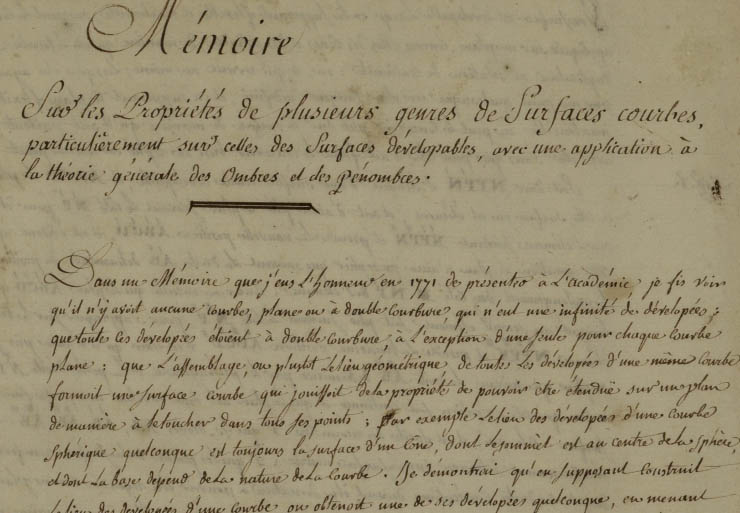 Mémoire
Sur les Propriétés de plusieurs genres de Surfaces courbes,
particulièrement sur celles des Surfaces dévelopables, avec une application à
la théorie générale des Ombres et des Pénombres.
Dans un Mémoire que j'eus L'honneur en 1771 de présenter à L'académie, je fis voir
qu'il n'y avoit aucune Courbe, plane ou à double Courbure, qui n'eut une infinité de dévelopées;
que toute ces dévelopées étoient à double courbure, à L'exception d'une seule pour chaque Courbe
plane; que L'assemblage, ou plutot Le lieu géométrique de toutes Les dévelopées d'une même Courbe
formoit une Surface courbe qui jouissoit de la propriété de pouvoir être étendue sur un plan
de manière à le toucher dans tous ses points; par exemple Le lieu des dévelopées d'une Courbe
Sphérique quelconque est toujours la surface d'un Cône, dont Le sommet est au centre de la Sphère,
et dont La base dépend de La nature de La Courbe. Je démontrai qu'en supposant construit
Le lieu des dévelopées d'une Courbe on obtenoit une de ses dévelopées quelconque, en menant